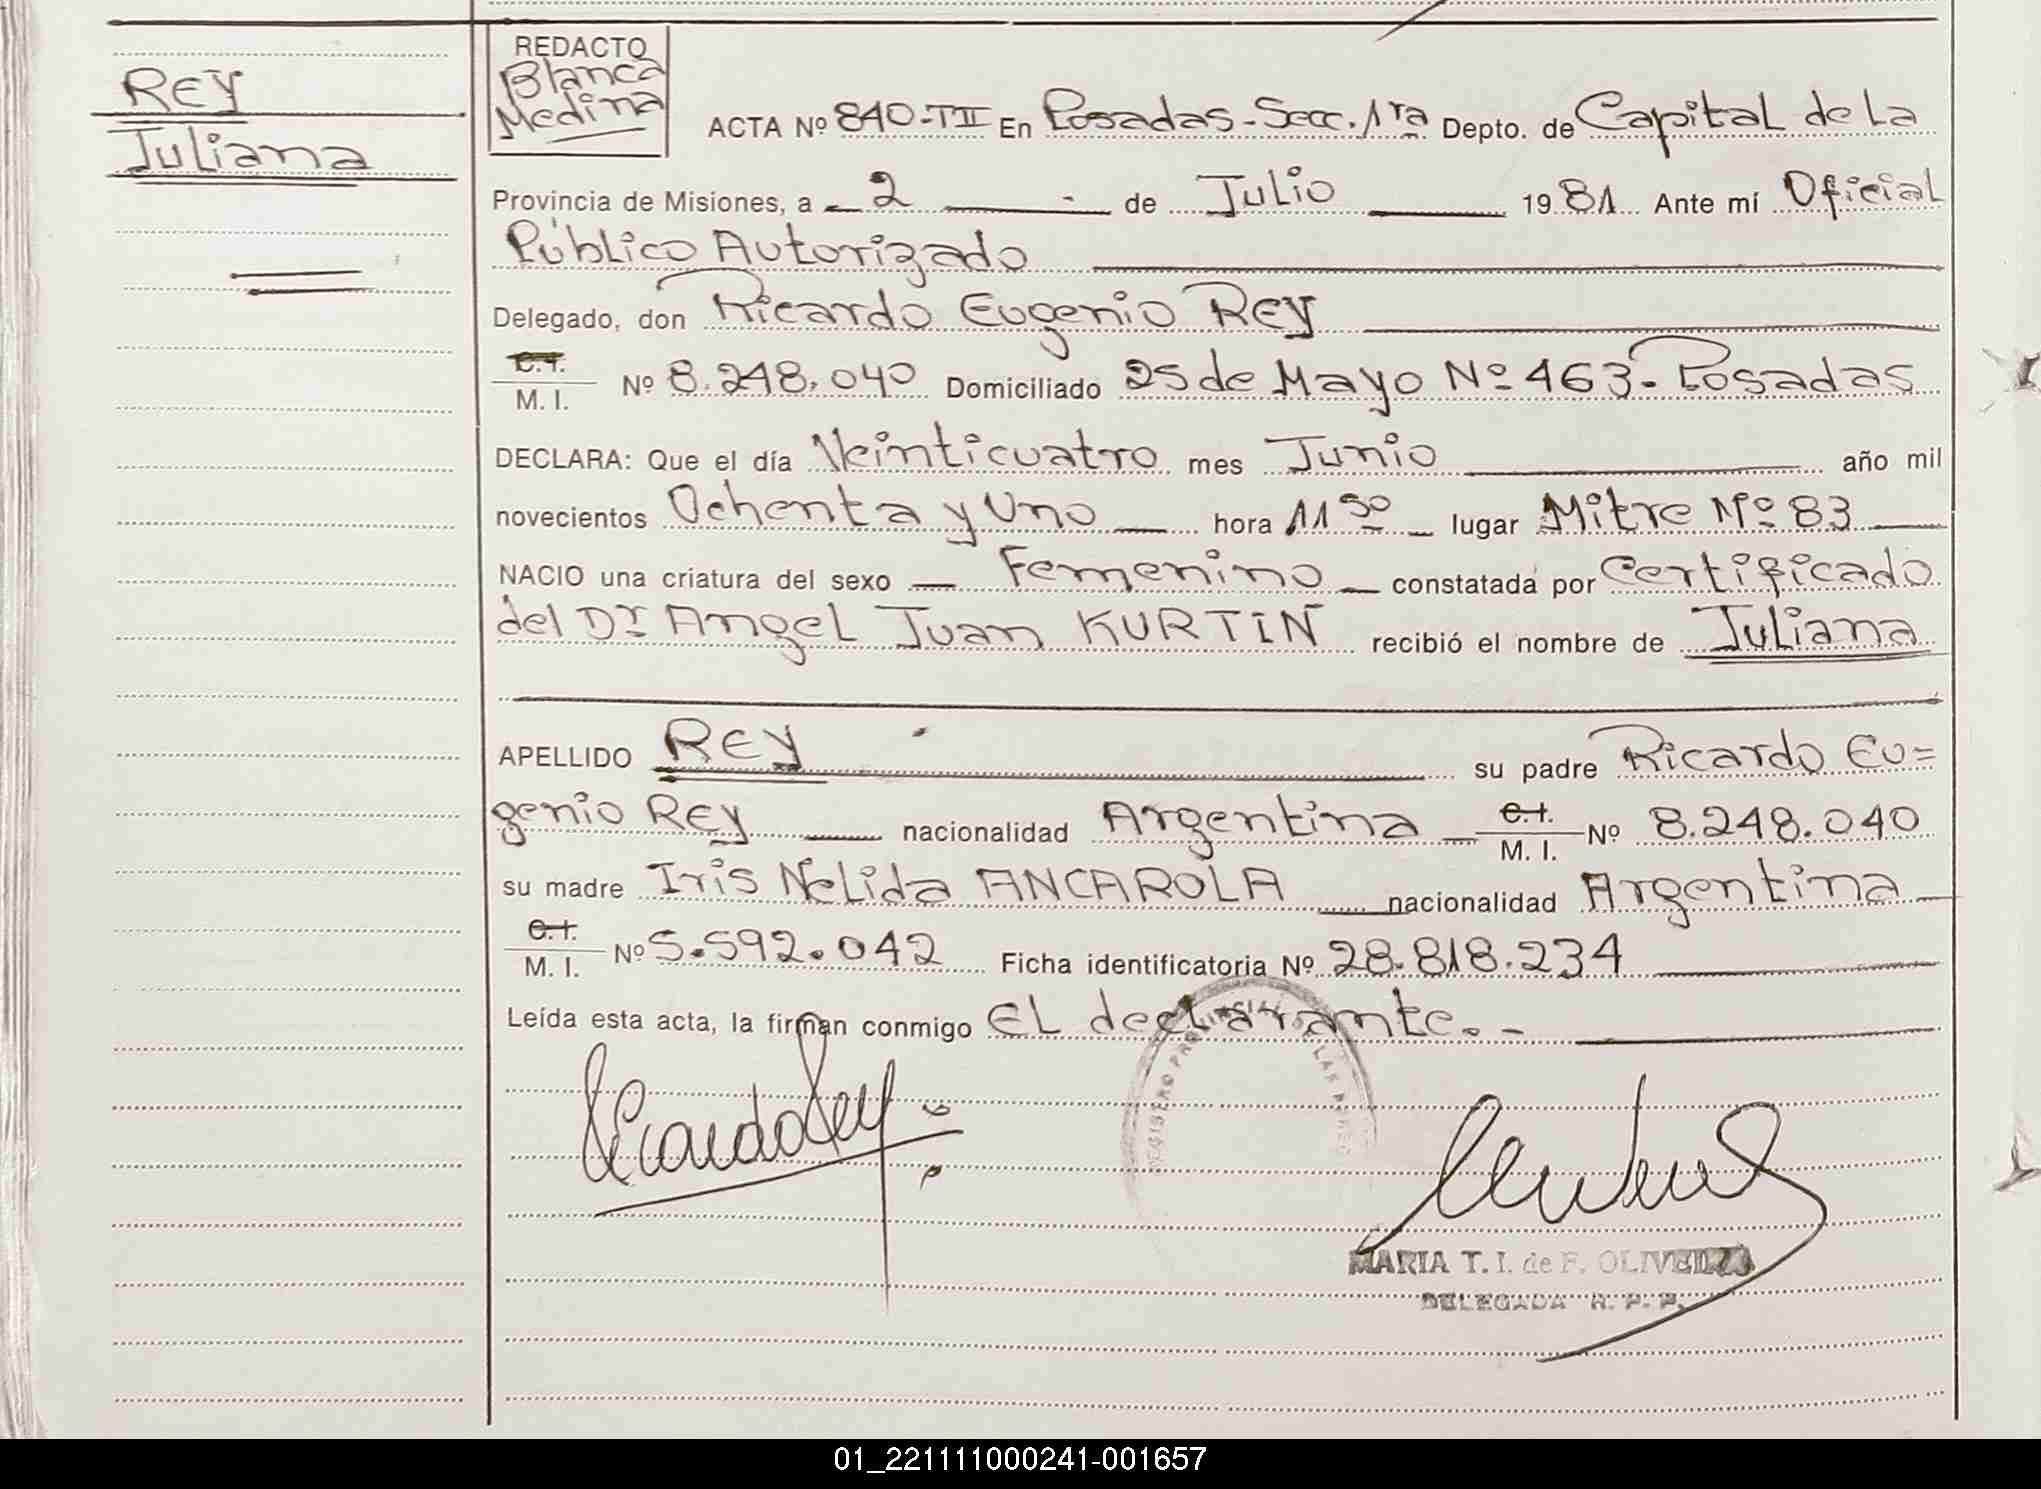 REY
Juliana
REDACTO
Blanca
Medina
ACTA Nº 840-TII En Posadas-Secc. 1ra Depto. de Capital de La
Provincia de Misiones, a 2 - de Julio 1981 Ante mí Oficial
Público Autorizado
Delegado, don Ricardo Eugenio REY
C.I. M. I. Nº 8.248.040 Domiciliado 25 de Mayo Nº 463-Posadas
DECLARA: Que el día Veinticuatro mes Junio año mil
novecientos Ochenta y Uno hora 11 30 lugar Mitre Nº 83
NACIO una criatura del sexo Femenino constatada por Certificado
del Dr. Angel Juan KURTIN recibió el nombre de Juliana
APELLIDO REY su padre Ricardo Eu=
genio REY nacionalidad Argentina C.I. M. I. Nº 8.248.040
su madre Iris Nelida ANCAROLA nacionalidad Argentina
C.I. M. I. Nº 5.592.042 Ficha identificatoria Nº 28.818.234
Leída esta acta, la firman conmigo El declarante.-
Ricardo Rey
REGISTRO PROVINCIAL DE LAS
MARIA T. I. de F. OLIVEIRA
DELEGADA R. P. P.
01_221111000241-001657